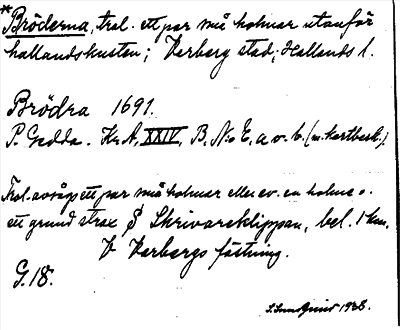 *Bröderna, trol. ett par små holmar utanför
hallandskusten; Varberg stad; Hallands l.
Brödra 1691.
P. Gedda. Kr. A, XXIV, B. N:o E, a o. b. (m. kartbesk.)
Trol. avsågs ett par små holmar eller ev. en holme o.
ett grund strax S Skrivareklippan, bel. 1 km.
V Varbergs fästning.
G. 18.
S. Sundqvist 1928.